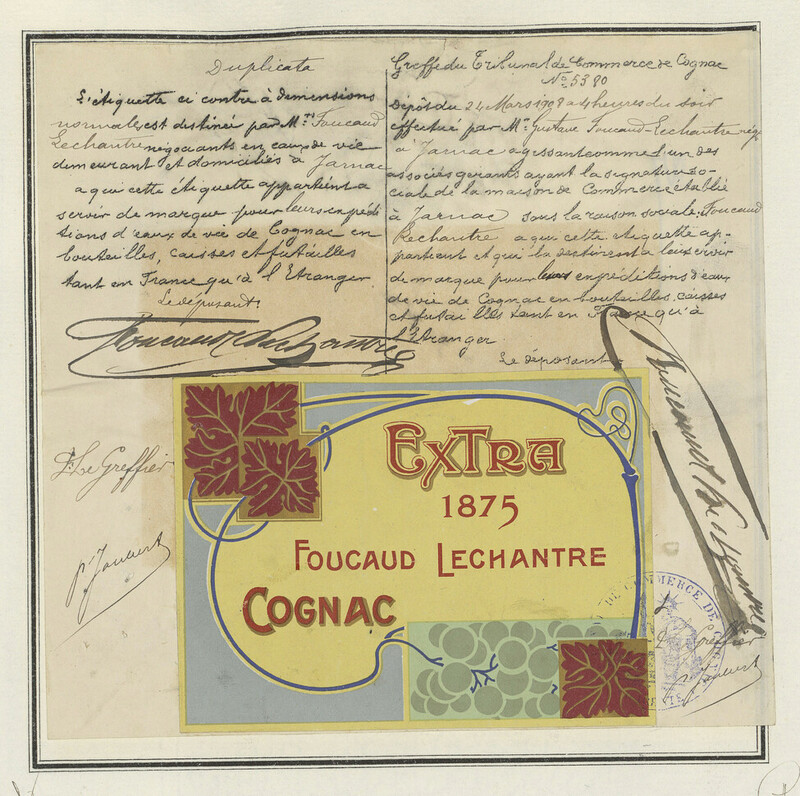 Duplicata
L'étiquette ci contre à demensions
normales, est destinée par Mrs Foucaud
Lechantre négociants en eaux de vie
demeurant et domiciliés à Jarnac
a qui cette étiquette appartient a
servir de marque pour leurs expédi
tions d'eaux de vie de Cognac en
bouteilles, caisses et futailles
tant en France qu'à l'Etranger.
Le déposant:
Foucaud Lechantre
Greffe du Tribunal de Commerce de Cognac
No 5380
Dépôt du 24 Mars 1908 a 4 heures du soir
effectué par Mr Gustave Foucaud-Lechantre négt
à Jarnac agissant comme l'un des
associés gerants ayant la signature so-
ciale de la maison de Commerce établie
à Jarnac sous la raison sociale: Foucaud
Lechantre a qui cette étiquette ap-
partient et qui la destinent a leur servir
de marque pour leurs expéditions d'eaux
de vie de Cognac en bouteilles, caisses
et futailles tant en France qu'à
l'Etranger
Le déposant
Foucaud Lechantre
Le Greffier
pr Jaubert
EXTRA
1875
FOUCAUD LECHANTRE
COGNAC
DE COMMERCE DE
Le Greffier
pr Jaubert